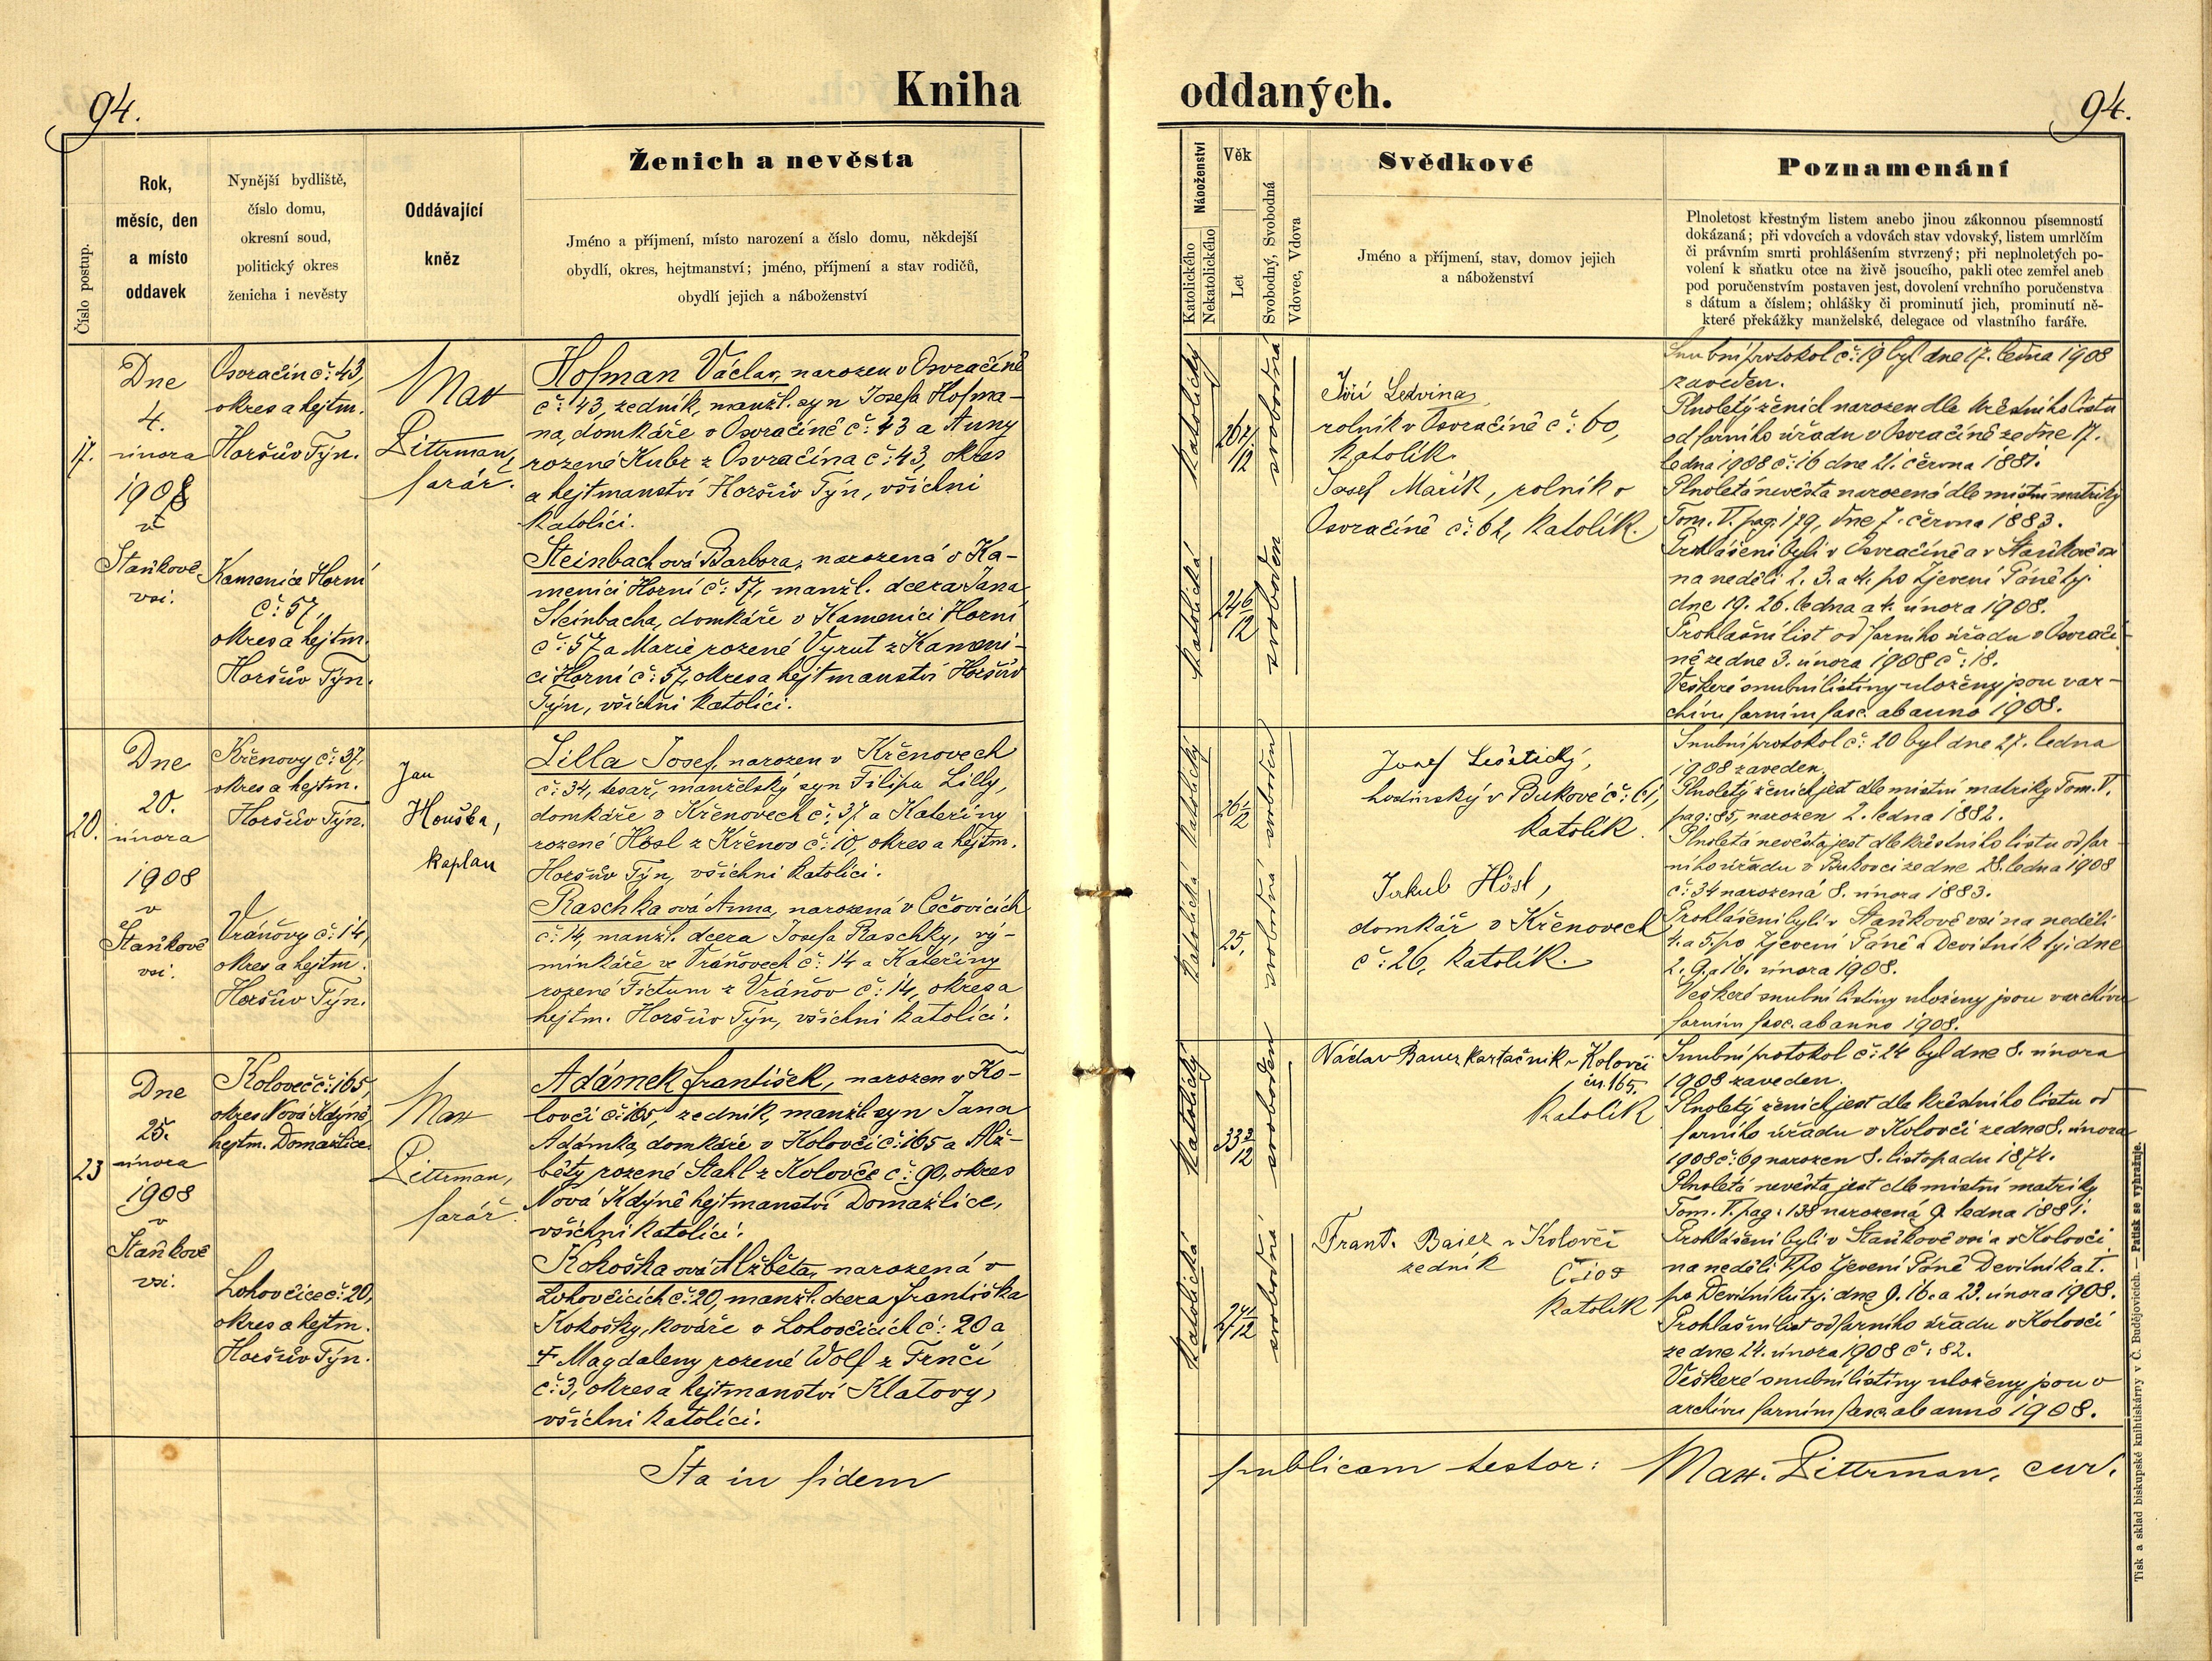 94.
Kniha
Číslo postup.
Rok,
měsíc, den
a místo
oddavek
Nynější bydliště,
číslo domu,
okresní soud,
politický okres
ženicha i nevěsty
Oddávající
kněz
Ženich a nevěsta
Jméno a příjmení, místo narození a číslo domu, někdejší
obydlí, okres, hejtmanství; jméno, příjmení a stav rodičů,
obydlí jejich a náboženství
17.
Dne
4.
února
1908
ve
Staňkově
vsi.
Osvračín č: 43,
okres a hejtm.
Horšův Týn.
Kamenice Horní
č: 57,
okres a hejtm.
Horšův Týn.
Max
Dittrman,
farář.
Hofman Václav, narozen v Osvračíně
č: 43, zedník, manžl. syn Josefa Hofma-
na, domkáře v Osvračíně č: 43 a Anny
rozené Kubr z Osvračína č: 43, okres
a hejtmanství Horšův Týn, všichni
katolíci.
Steinbachová Barbora, narozená v Ka-
menici Horní č: 57, manžl. dcera Jana
Steinbacha, domkáře v Kamenici Horní
č: 57 a Marie rozené Vyrut z Kameni-
ci Horní č: 57, okres a hejtmanství Horšův
Týn, všichni katolíci.
20.
Dne
20.
února
1908
v
Staňkově
vsi.
Křenovy č: 37,
okres a hejtm.
Horšův Týn.
Vráňovy č: 14,
okres a hejtm.
Horšův Týn.
Jan
Houška,
kaplan
Lilla Josef, narozen v Křenovech
č: 34, tesař, manželský syn Filipa Lilly,
domkáře v Křenovech č: 37 a Kateřiny
rozené Hösl z Křenov č: 10, okres a hejtm.
Horšův Týn, všichni katolíci.
Raschkaová Anna, narozená v Čečovicích
č: 14, manžl. dcera Josefa Raschky, vý-
minkáře ve Vráňovech č: 14 a Kateřiny
rozené Fictum z Vráňov č: 14, okres a
hejtm. Horšův Týn, všichni katolíci.
23
Dne
25.
února
1908
v
Staňkově
vsi.
Koloveč č: 165,
okres Nová Kdýně,
hejtm. Domažlice.
Lohovčice č: 20,
okres a hejtm.
Horšův Týn.
Max
Dittrman,
farář.
Adámek František, narozen v Ko-
lovči č: 165, zedník, manžl. syn Jana
Adámka, domkáře v Kolovči č: 165 a Alž-
běty rozené Stahl z Kolovče č: 90, okres
Nová Kdýně hejtmanství Domažlice,
všichni katolíci.
Kokoškaová Alžběta, narozená v
Lohovčicích č: 20, manžl. dcera Františka
Kokošky, kováře v Lohovčicích č: 20 a
Magdaleny rozené Wolf z Trnčí
č: 3, okres a hejtmanství Klatovy,
všichni katolíci.
Ita in fidem
oddaných.
94.
Náboženství
Katolického
Nekatolického
Věk
Let
Svobodný, Svobodná
Vdovec, Vdova
Svědkové
Jméno a příjmení, stav, domov jejich
a náboženství
Poznamenání
Plnoletost křestným listem anebo jinou zákonnou písemností
dokázaná; při vdovcích a vdovách stav vdovský, listem umrlčím
či právním smrti prohlášením stvrzený; při neplnoletých po-
volení k sňatku otce na živě jsoucího, pakli otec zemřel aneb
pod poručenstvím postaven jest, dovolení vrchního poručenstva
s dátum a číslem; ohlášky či prominutí jich, prominutí ně-
které překážky manželské, delegace od vlastního faráře.
katolický
26 7/12
svobodná
katolická
24 6/12
svoboden
Jiří Ledvina,
rolník v Osvračíně č: 60,
katolík.
Josef Mařík, rolník v
Osvračíně č: 62, katolík.
Snubní protokol č: 19 byl dne 17. ledna 1908
zaveden.
Plnoletý ženich narozen dle křestního listu
od farního úřadu v Osvračíně ze dne 17.
ledna 1908 č: 16 dne 21. června 1881.
Plnoletá nevěsta narozená dle místní matriky
Tom. V. pag: 179, dne 7. června 1883.
Prohlášeni byli v Osvračíně a v Staňkově vsi
na neděli 2. 3. a 4. po Zjevení Páně tj.
dne 19. 26. ledna a 4. února 1908.
Prohlašní list od farního úřadu v Osvrači-
ně ze dne 3. února 1908 č: 18.
Veškeré snubní listiny uloženy jsou v ar-
chivu farním fasc. ab anno 1908.
katolický
26 1/12
svoboden
katolická
25,
svobodná
Josef Leštický,
hostinský v Bukové č: 61,
katolík.
Jakub Hösl,
domkář v Křenovech
č: 26, katolík.
Snubní protokol č: 20 byl dne 27. ledna
1908 zaveden.
Plnoletý ženich jest dle místní matriky Tom. V.
pag: 85, narozen 2. ledna 1882.
Plnoletá nevěsta jest dle křestního listu od far-
ního úřadu v Bukovci ze dne 28. ledna 1908
č: 34 narozená 8. února 1883.
Prohlášeni byli v Staňkově vsi na neděli
4. a 5. po Zjevení Páně a Devítník tj: dne
2. 9. a 16. února 1908.
Veškeré snubní listiny uloženy jsou v archivu
farním fasc. ab anno 1908.
katolický
33 3/12
svoboden
katolická
27 1/12
svobodná
Václav Bauer kartačník v Kolovči
čís. 165,
katolík
Frant. Baier v Kolovči
zedník č: 105
katolík
Snubní protokol č: 24 byl dne 8. února
1908 zaveden.
Plnoletý ženich jest dle křestního listu od
farního úřadu v Kolovči ze dne 8. února
1908 č: 69 narozen 8. listopadu 1874.
Plnoletá nevěsta jest dle místní matriky
Tom. V. pag: 138 narozená 9. ledna 1881.
Prohlášeni byli v Staňkově vsi a v Kolovči
na neděli V. po Zjevení Páně Devítník a I.
po Devítníku tj. dne 9. 16. a 23. února 1908.
Prohlašní list od farního úřadu v Kolovči
ze dne 24. února 1908 č: 82.
Veškeré snubní listiny uloženy jsou v
archivu farním fasc. ab anno 1908.
publicam testor: Max. Dittrman, cur.
Tisk a sklad biskupské knihtiskárny v Č. Budějovicích. — Patisk se vyhražuje.